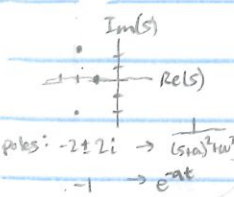 Im(s)
Re(s)
poles: -2±2i → 1/((s+a)²+ω²
-1 → e^-at